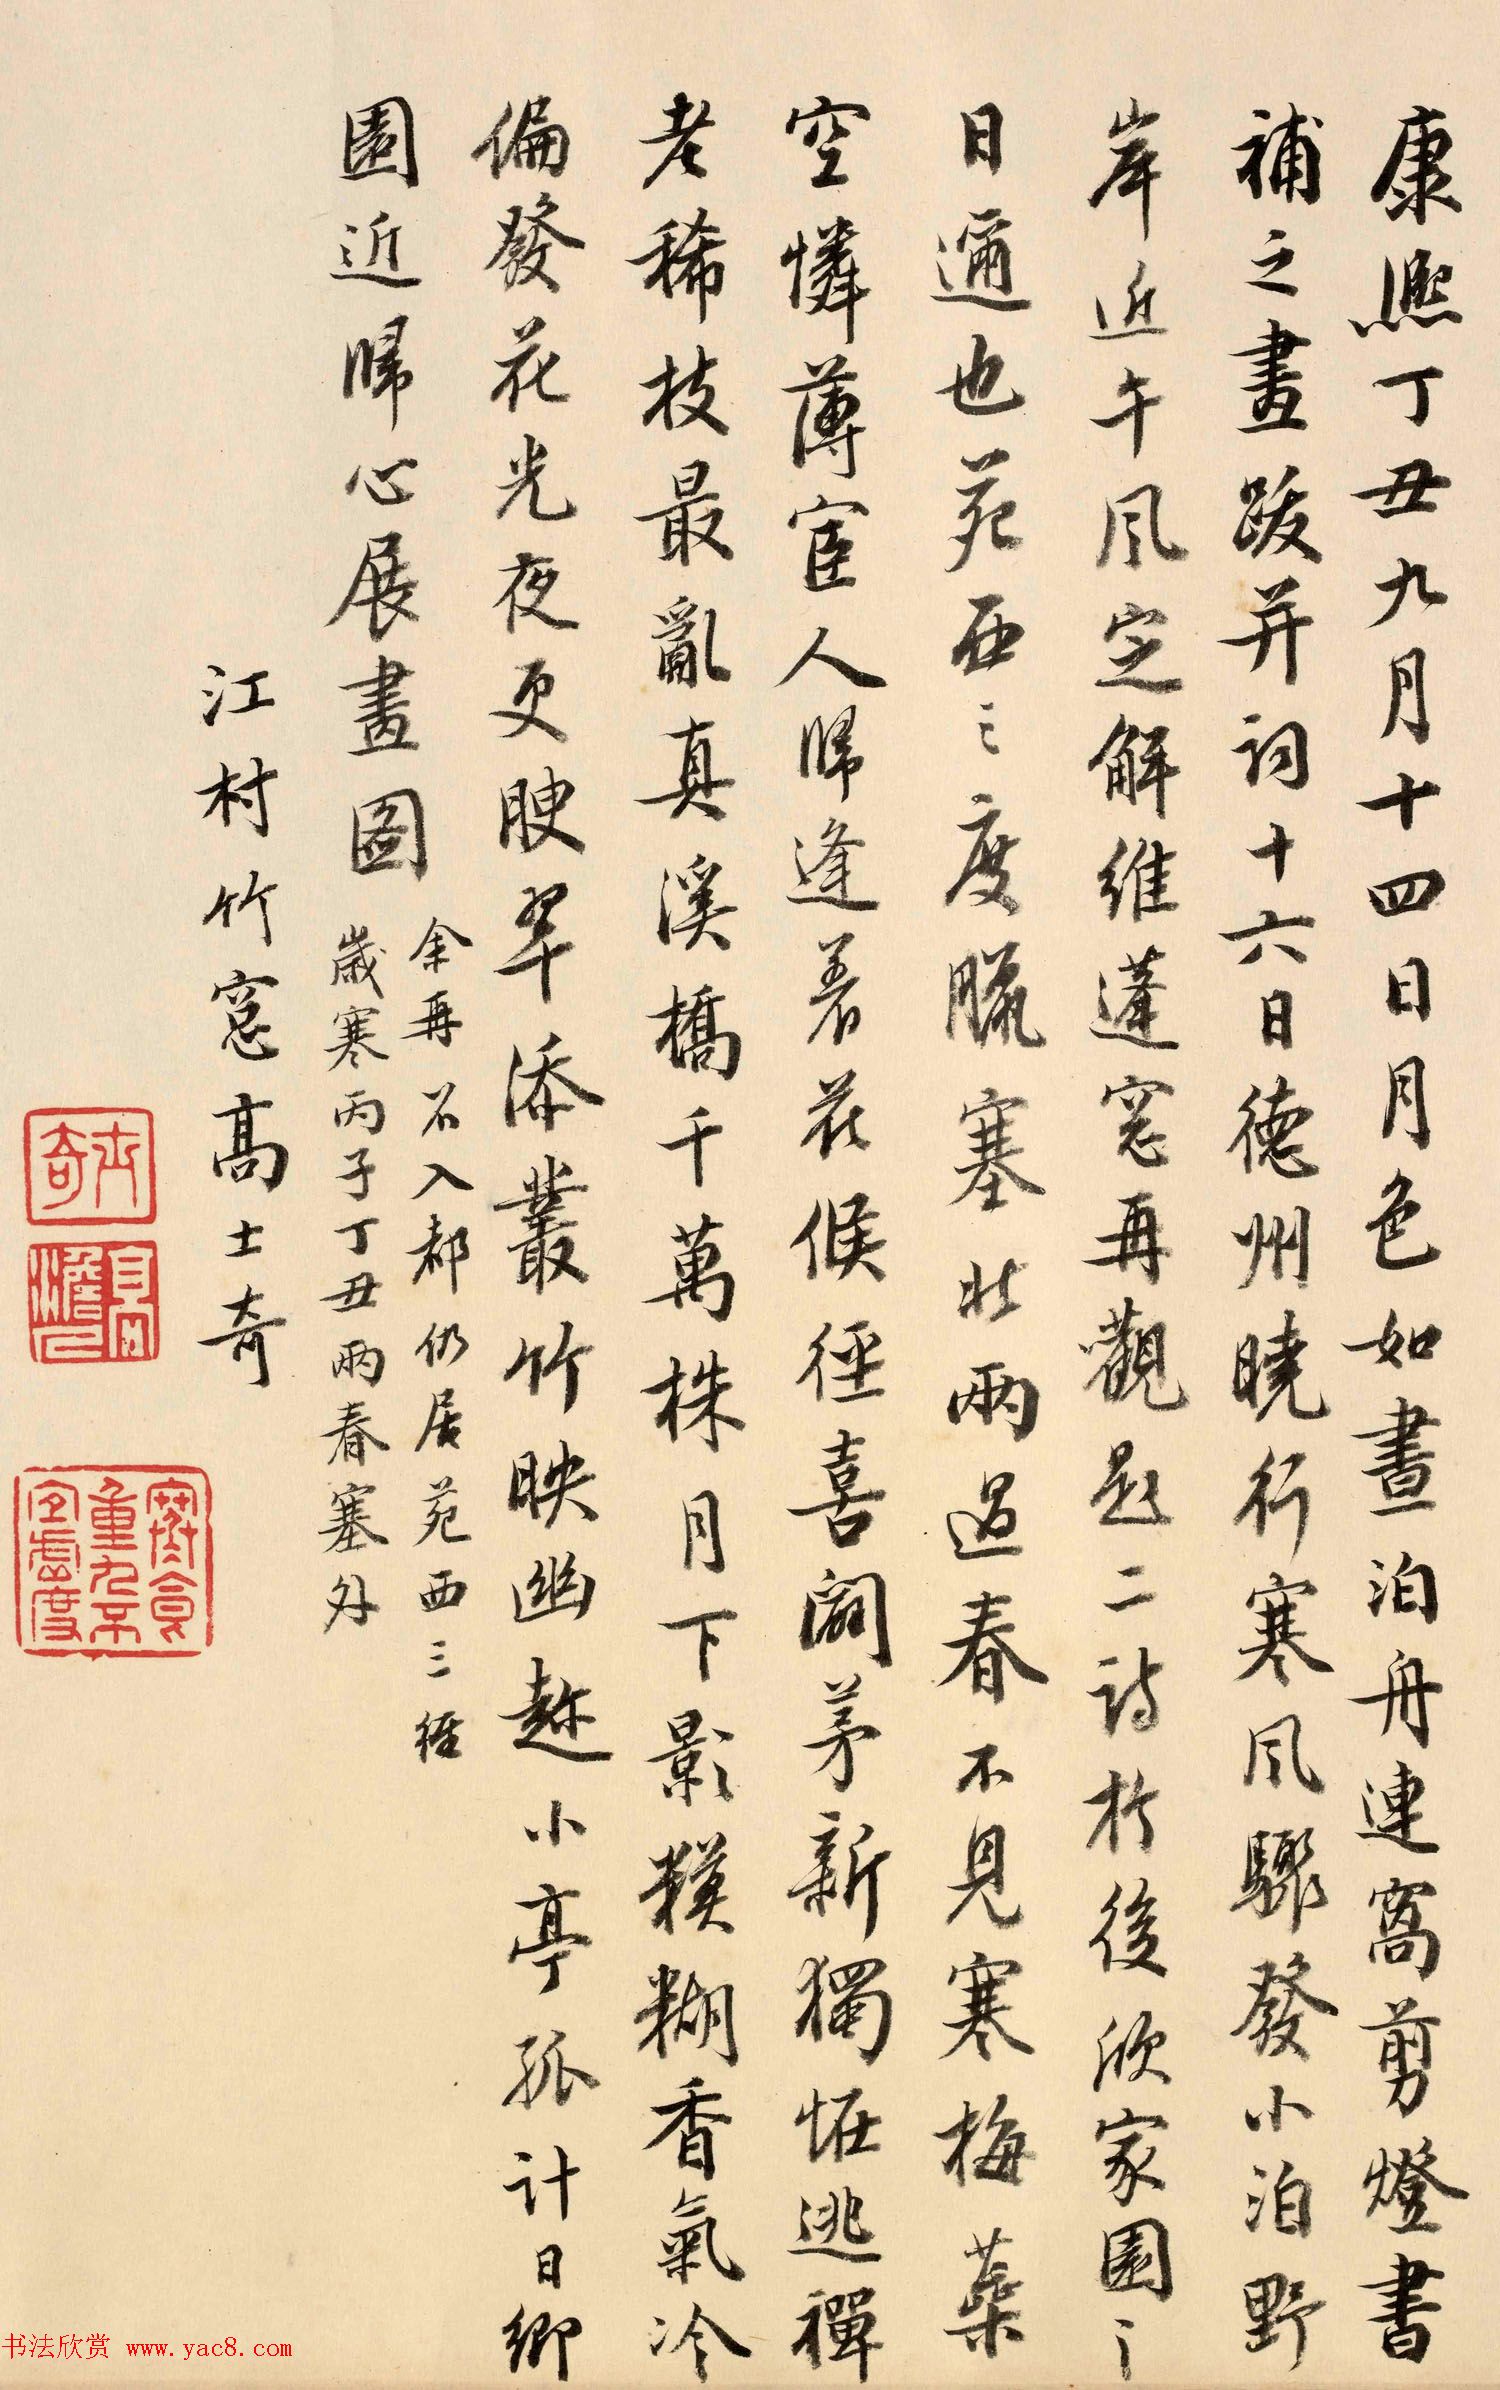 康熙丁丑九月十四日月色如晝泊舟連窩剪燈書
補之畫跋并詞十六日德州曉行寒風驟發小泊野
岸近午風定解維蓬窓再觀題二詩於後欣家園之
日邇也苑西三度臘塞北兩過春不見寒梅蘂
空憐薄宦人歸逢着花候徑喜闢茅新獨恠逃禪
老稀枝最亂真溪橋千萬株月下影糢糊香氣冷
偏發花光夜更腴翠添叢竹映幽趂小亭孤計日鄉
園近歸心展畫圖
余再召入都仍居苑西三經
歲寒丙子丁丑兩春塞外
江村竹窓高士奇
士奇
高澹人
书法欣赏 www.yac8.com